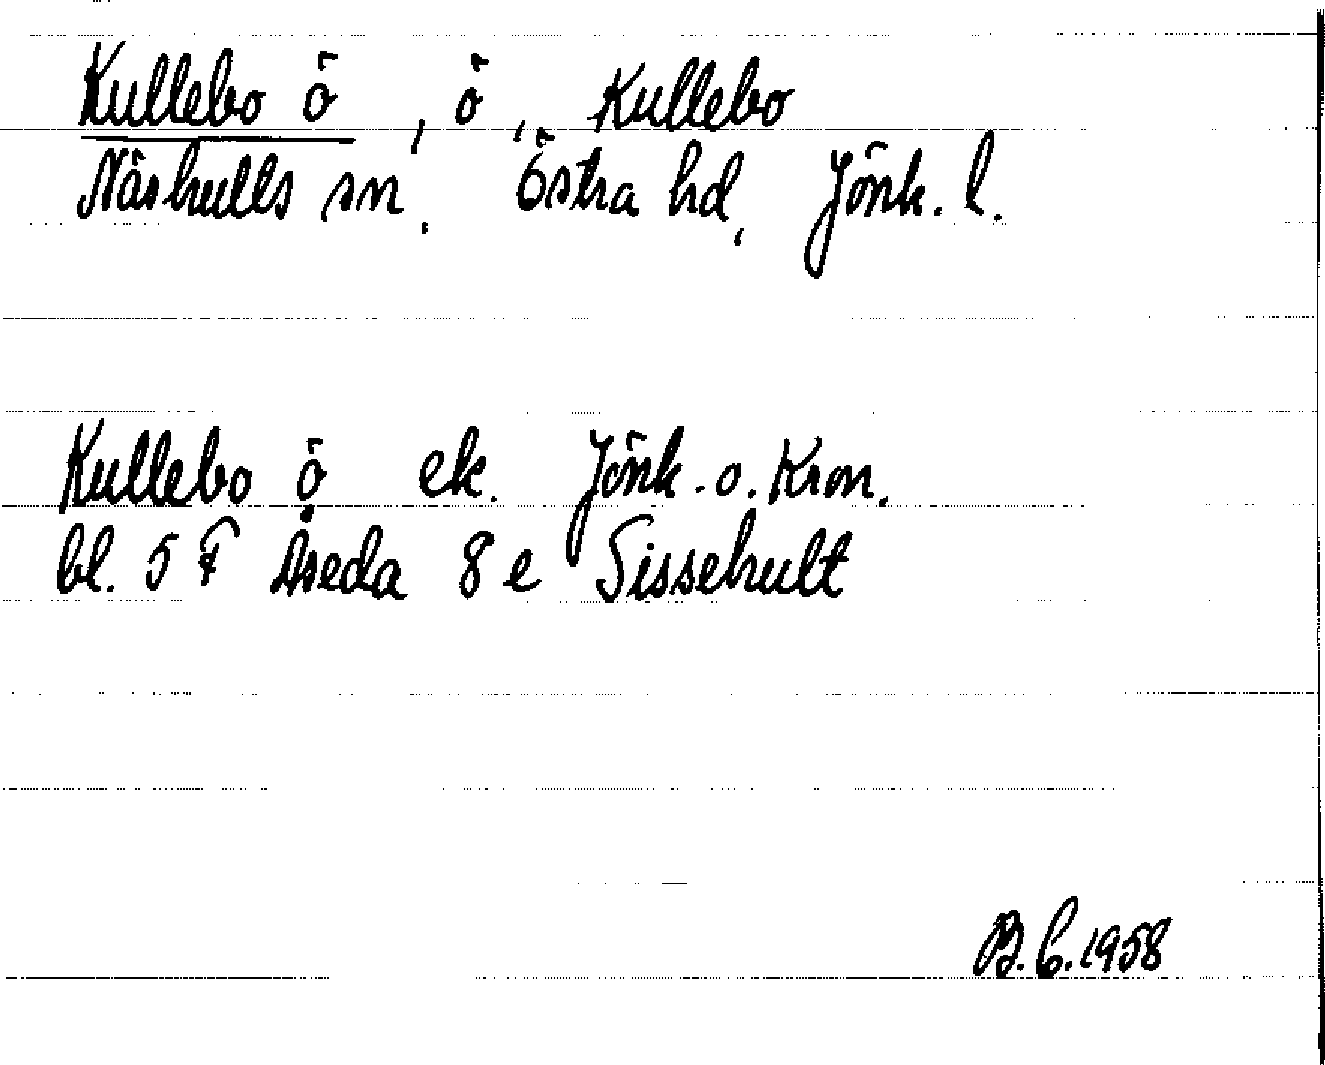 Kullebo ö, ö, Kullebo
Näshults sn. Östra hd, Jönk. l.
Kullebo ö ek. Jönk. o. Kron.
bl. 5 F Åseda 8 e Sissehult
B. C. 1958